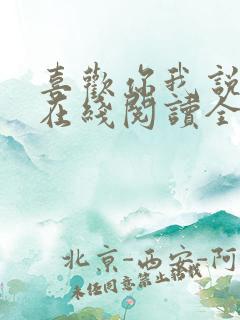 喜歡你我說
在綫閱讀全
北京-西安-阿
未经同意禁止转载